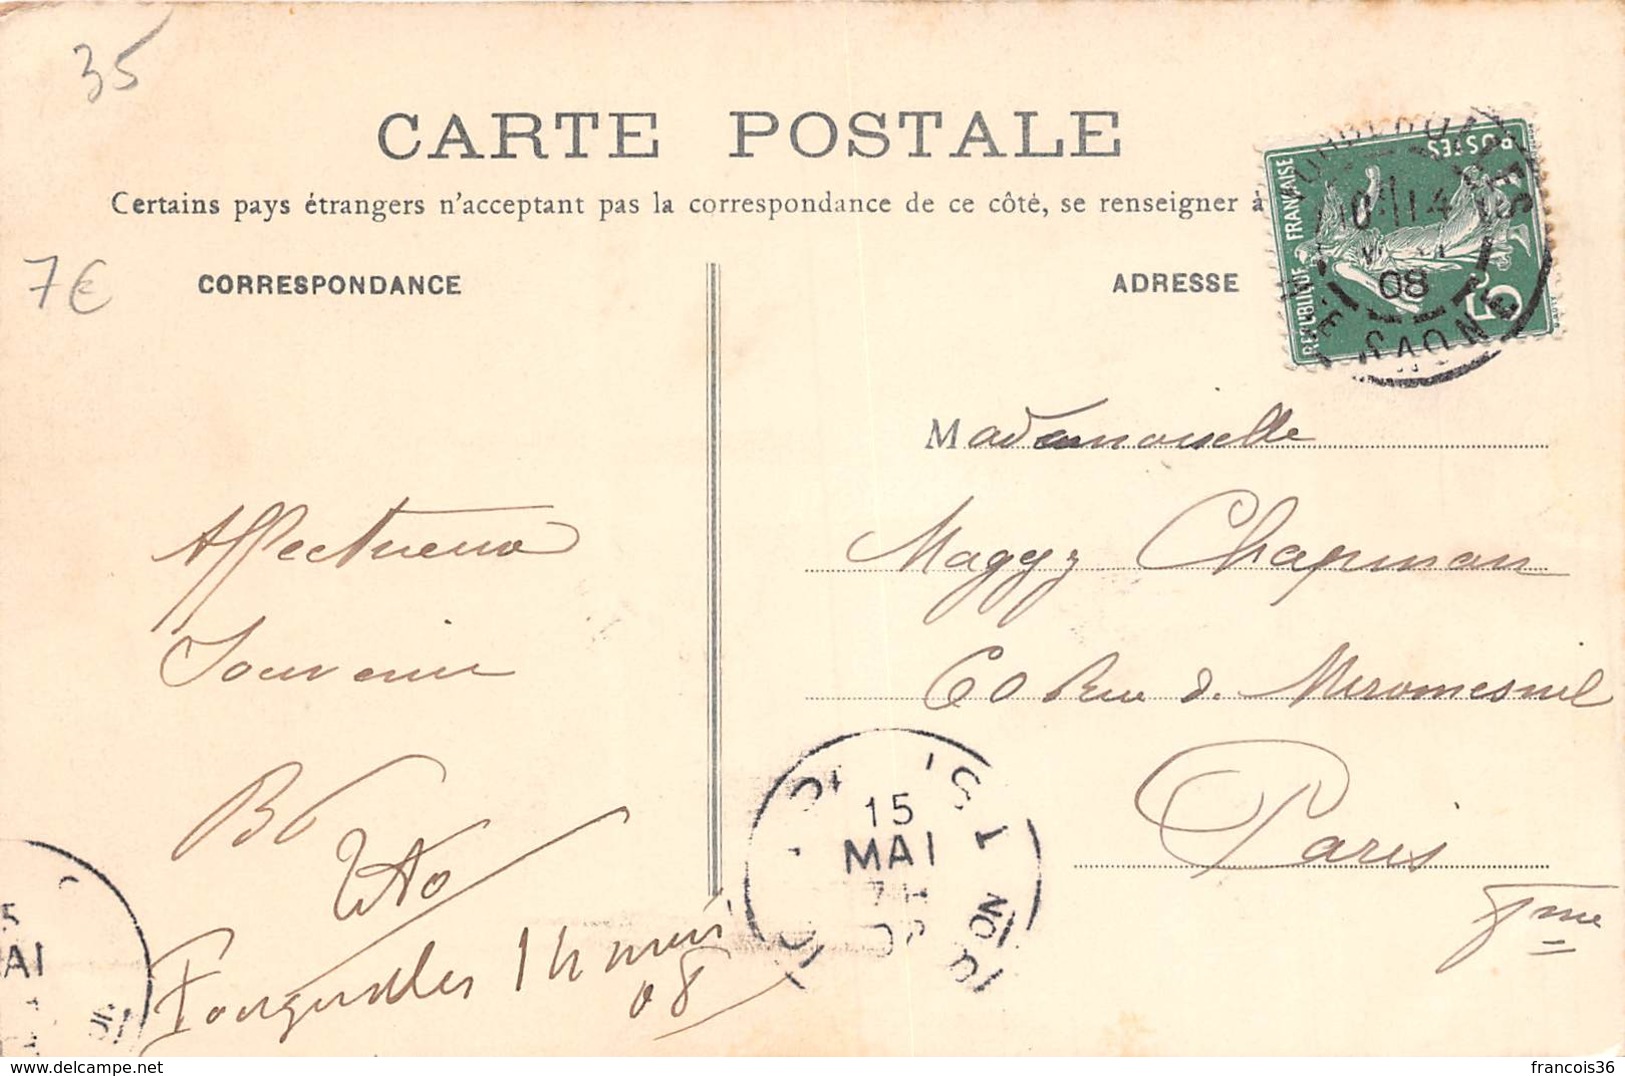 35
CARTE POSTALE
Certains pays étrangers n'acceptant pas la correspondance de ce côté, se renseigner à
7€
CORRESPONDANCE
ADRESSE
REPUBLIQUE FRANÇAISE
POSTES
5
14
08
HTE SAONE
Mademoiselle
Maggy Chapman
60 Rue de Miromesnil
Paris
8me
Affectueux
Souvenir
Fougerolles 14 mai
08
15
MAI
5
AI
delcampe.net
francois36